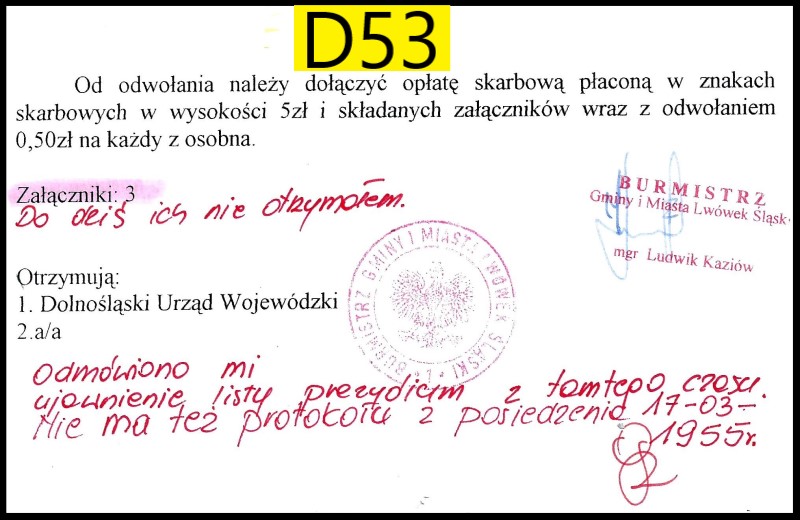 D53
Od odwołania należy dołączyć opłatę skarbową płaconą w znakach
skarbowych w wysokości 5zł i składanych załączników wraz z odwołaniem
0,50zł na każdy z osobna.
Załączniki: 3
Do dziś ich nie otrzymałem.
BURMISTRZ
Gminy i Miasta Lwówek Śląsk
mgr Ludwik Kaziów
Otrzymują:
1. Dolnośląski Urząd Wojewódzki
2.a/a
BURMISTRZ GMINY I MIASTA LWÓWEK ŚLĄSKI
1
Odmówiono mi
ujawnienie listy prezydium z tamtego czasu.
Nie ma też protokołu z posiedzenia 17-03-
1955r.